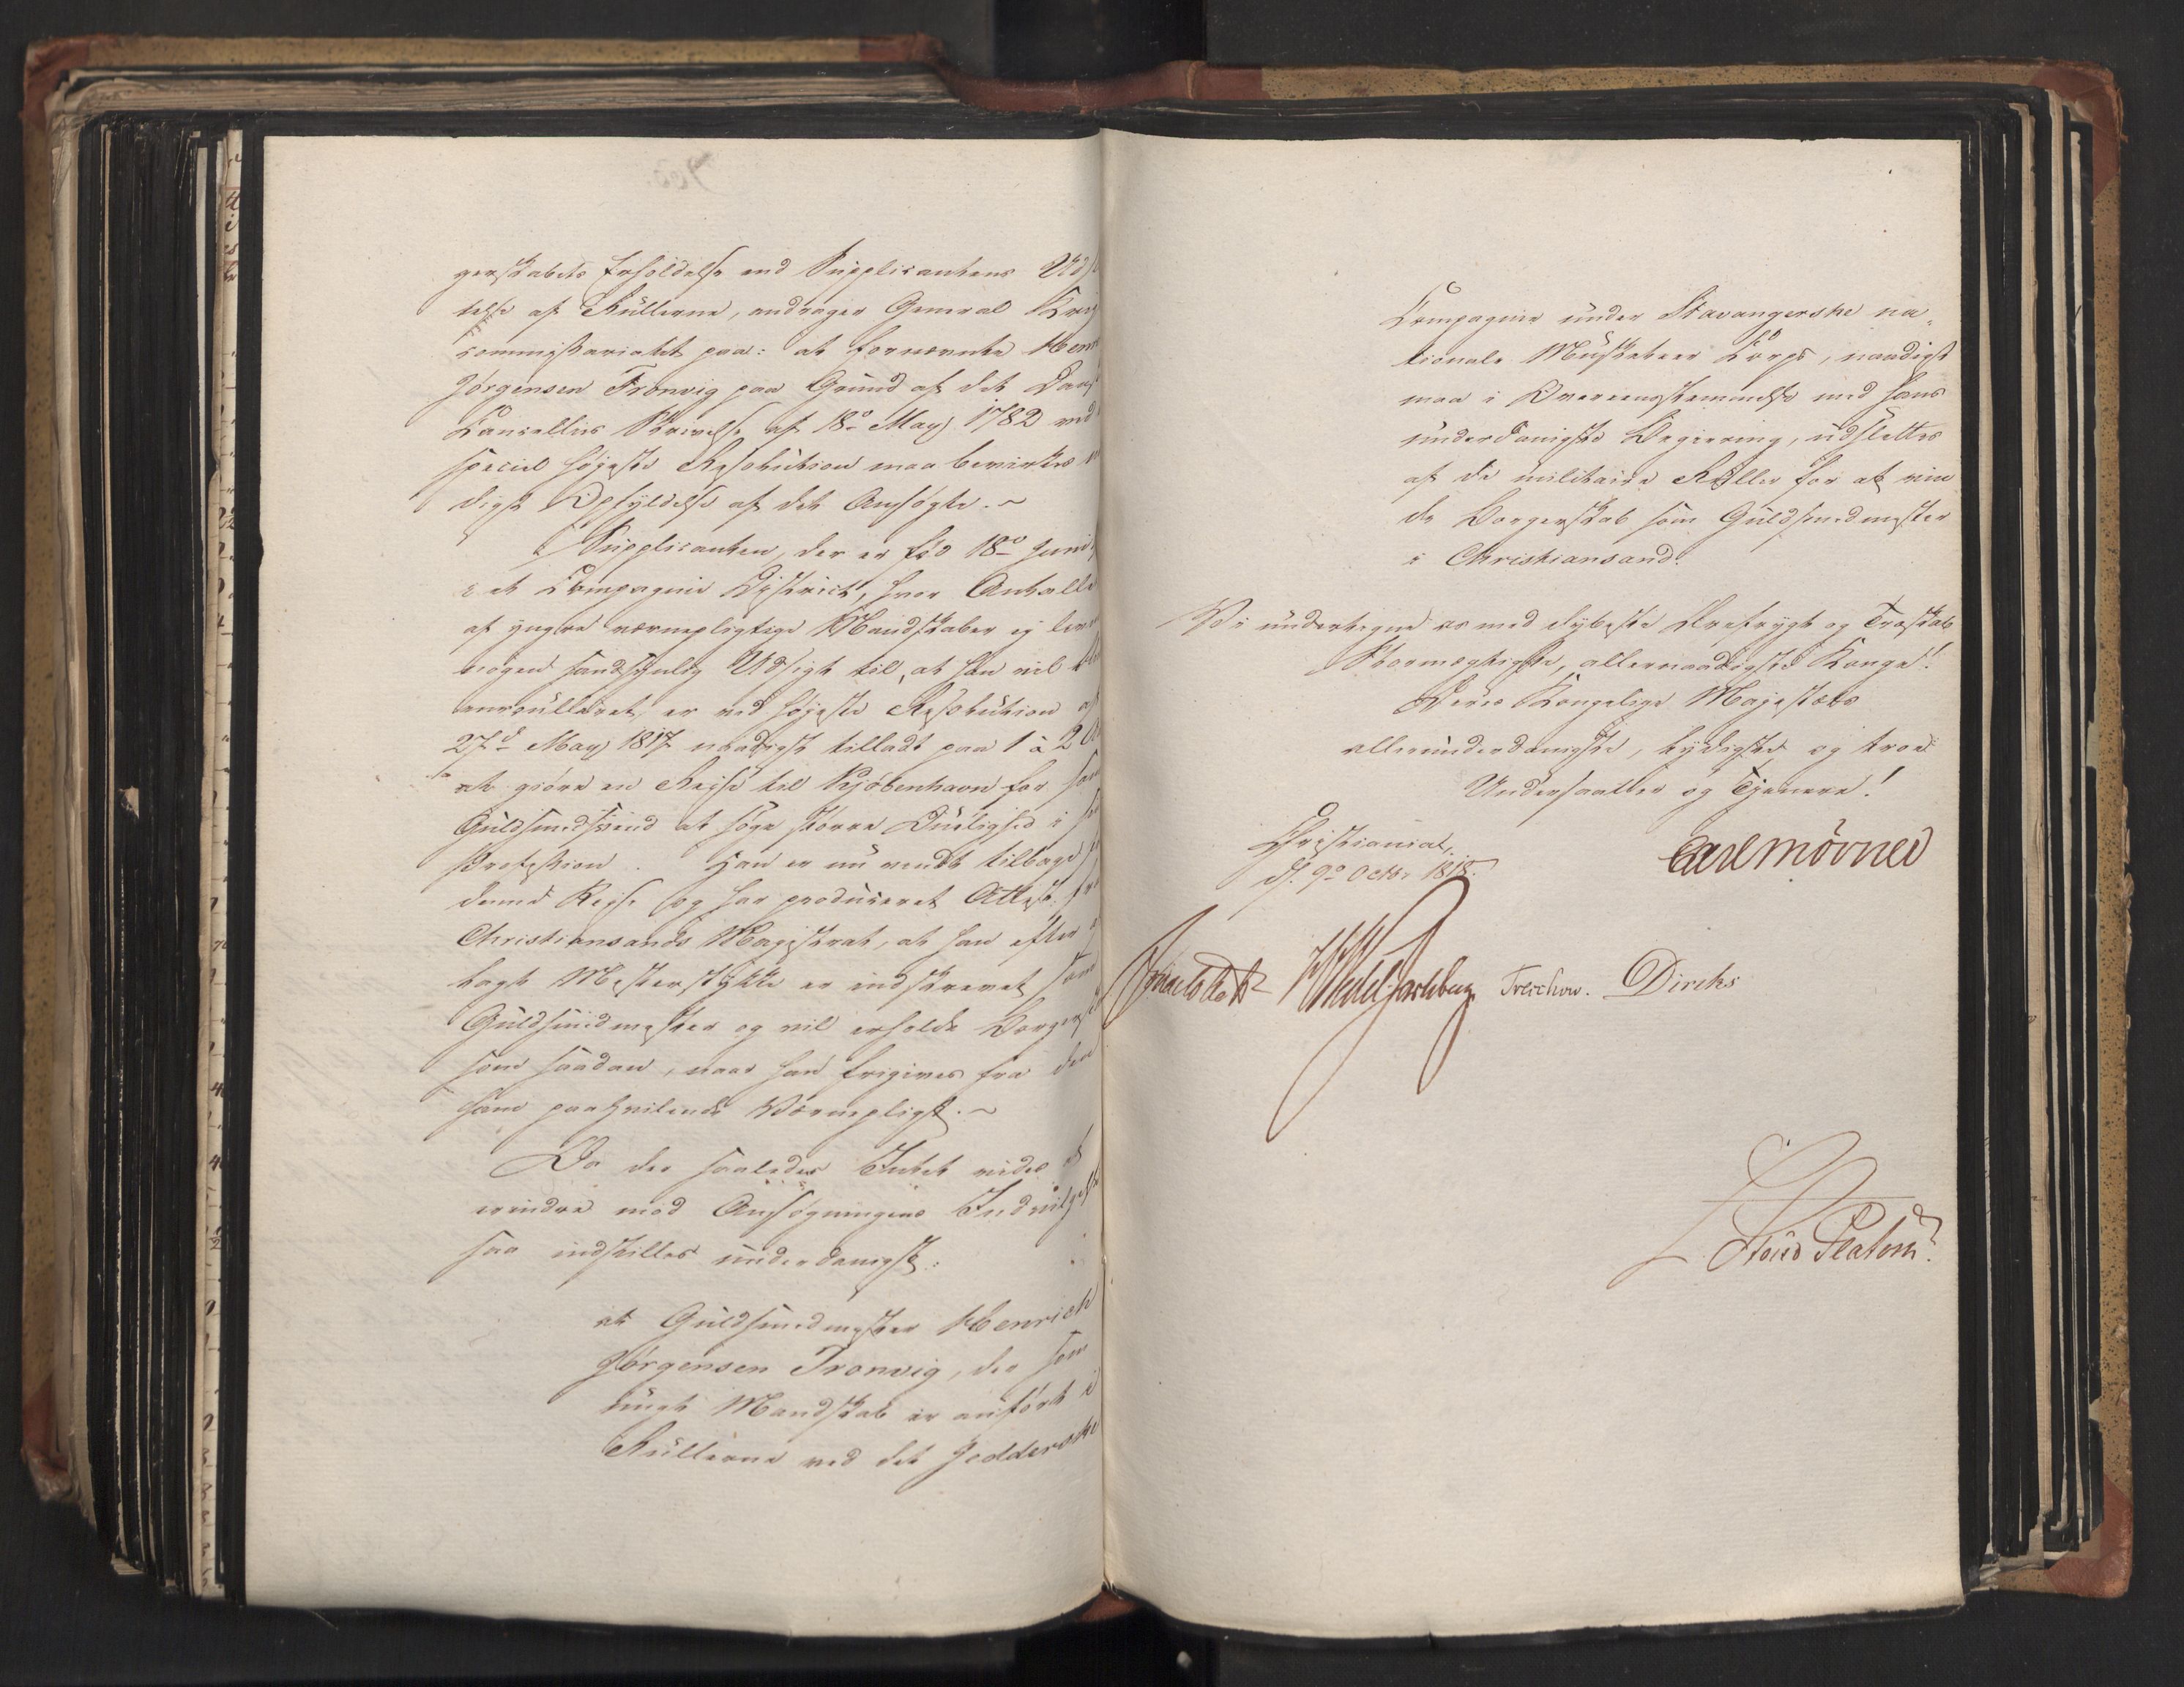 gerskabets Erholdelse end Supplicantens Uds
telse af Rullerne, andrager General Krig
commissariatet paa: at fornævnte Hen
Jörgensen Tronvig paa Grund af det Dans
Cancellies Skrivelse af 18de May 1782 ved
speciel høieste Resolution maa bevirkes
digst Opfyldelse af det Ansøgte. ~
Supplicanten, der er fød 18de Juni
i et Compagnie District, hvor Antalle
af yngre værnepligtige Mandskaber ej lev
nogen sandsynlig Udsigt til, at han vil
enroulleret, er ved høieste Resolution af
27de May 1817 naadigst tilladt paa 1 à 2 A
at giøre en Reise til Kjöbenhavn for som
Guldsmedsvend at søge større Duelighed i
Profession. Han er nu vendt tilbage
denne Reise og har produceret Attest fra
Christiansands Magistrat, at han efter
lagt Mesterstykke er indskrevet som
Guldsmedmester og vil erholde Borgersk
som saadan, naar han frigives fra den
ham paahvilende Værnepligt. ~
Da der saaledes Intet vides
erindre mod Ansøgningens Indvilgelse
saa indstilles underdanigst:
at Guldsmedmester Henrich
Jörgensen Tronvig, der som
ungt Mandskab er anført i
Rullerne ved det Jedderske
Compagnie under Stavangerske na„
tionale Musketeer Corps, naadigst
maa i Overeensstemmelse med hans
underdanigste Begiering, udslettes
af de militaire Ruller for at vin
de Borgerskab som Guldsmedmester
i Christiansand.
Vi undertegne os med dybeste Ærefrygt og Troskab
Stormægtigste, allernaadigste Konge!
Deres Kongelige Majestæts
allerunderdanigste, lydigste og troe
Undersaatter og Tjenere!
Christiania,
d. 9de Octbr 1818.
Carl Mörner
Wedel Jarlsberg Treschow. Dircks